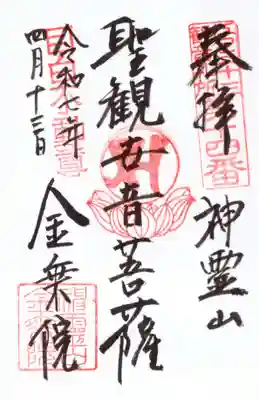 奉拝
神霊山
聖観世音菩薩
令和七年
四月十三日
金乗院